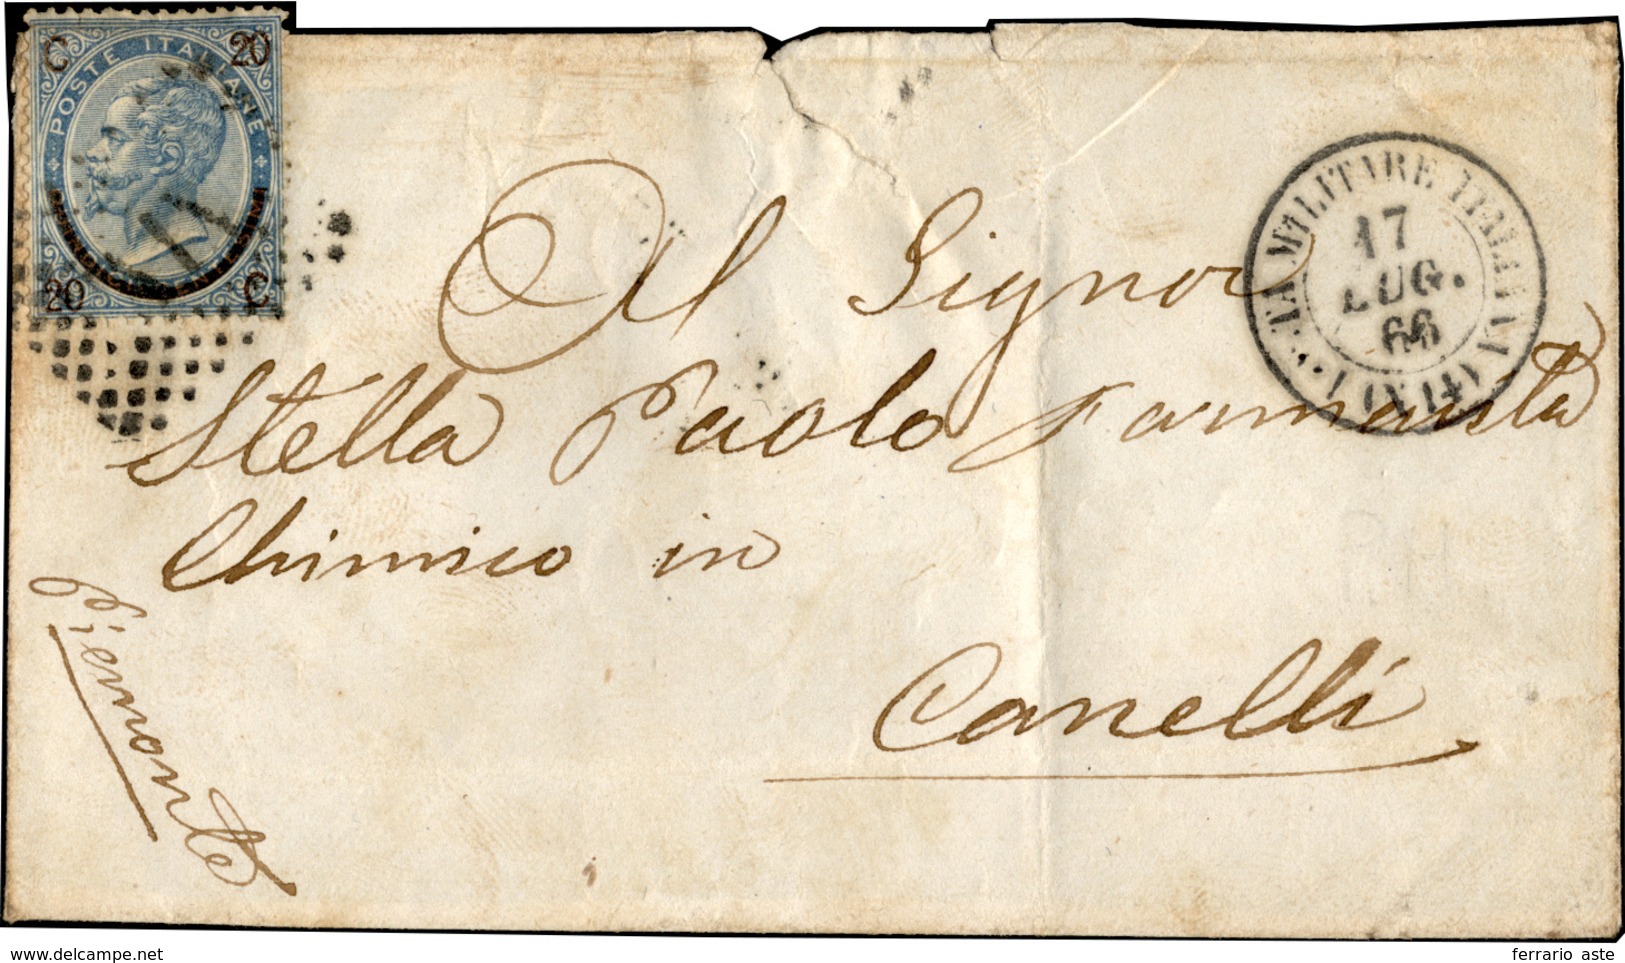 C 20
POSTE ITALIANE
20 C
11
POSTA MILITARE ITALIANA
17
LUG.
66
Al Signor
Stella Paolo Farmacista
Chimico in
Canelli
Piemonte
www.delcampe.net
ferrario aste